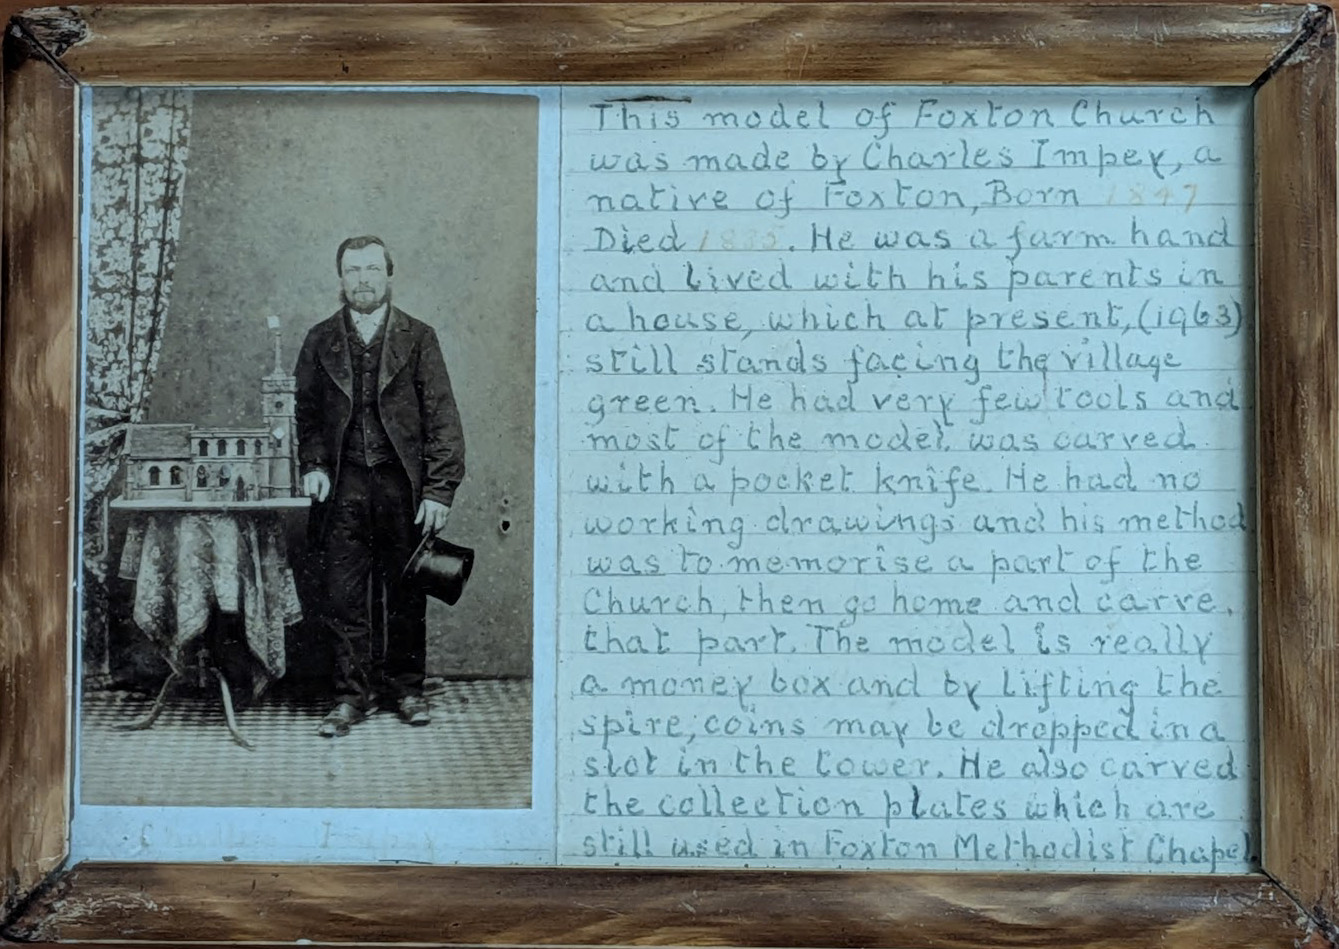 This model of Foxton Church
was made by Charles Impey, a
native of Foxton, Born 1847
Died. He was a farm hand
and lived with his parents in
a house, which at present, (1963)
still stands facing the village
green. He had very few tools and
most of the model was carved
with a pocket knife. He had no
working drawings and his method
was to memorise a part of the
Church, then go home and carve
that part. The model is really
a money box and by lifting the
spire, coins may be dropped in a
slot in the tower. He also carved
the collection plates which are
still used in Foxton Methodist Chapel.